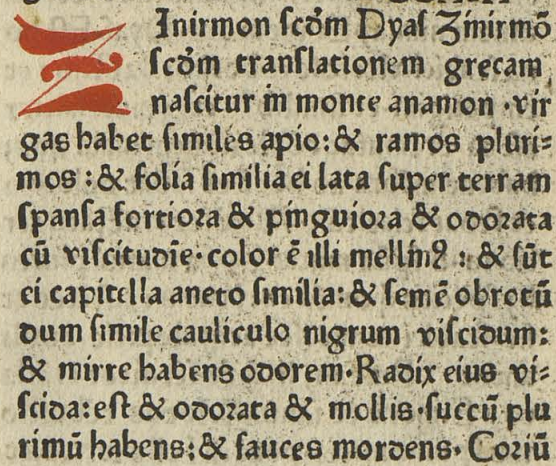 Zinirmon ſcōm Dyaſ Zmirmō
ſcōm tranſlationem grecam
naſcitur in monte anamon ·vir
gas habet ſimiles apio: & ramos pluri⸗
mos : & folia ſimilia ei lata ſuper terram
ſpanſa fortiora & pinguiora & odorata
cū viſcitudīe· color ē illi mellinꝰ : & ſūt
ei capitella aneto ſimilia: & ſemē obrotū
dum ſimile cauliculo nigrum viſcidum:
& mirre habens odorem· Radix eius vi⸗
ſcida: eſt & odorata & mollis· ſuccū plu
rimū habens: & fauces mordens· Coriū